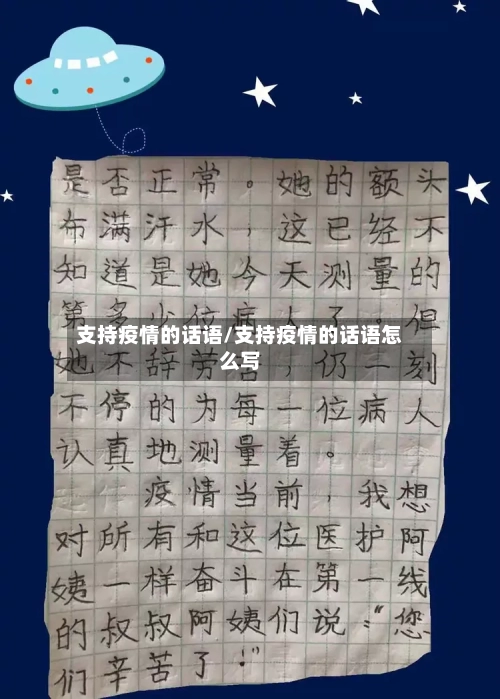 是否正常。她的额头
布满汗水，这已经不
知道是她今天测量的
第多少位病人了。但
支持疫情的话语/支持疫情的话语怎
么写
她不辞劳苦，仍一刻
不停的为每一位病人
认真地测量着。
疫情当前，我想
对所有和这位医护阿
姨一样奋斗在第一线
的叔叔阿姨们说：“您
们辛苦了！”